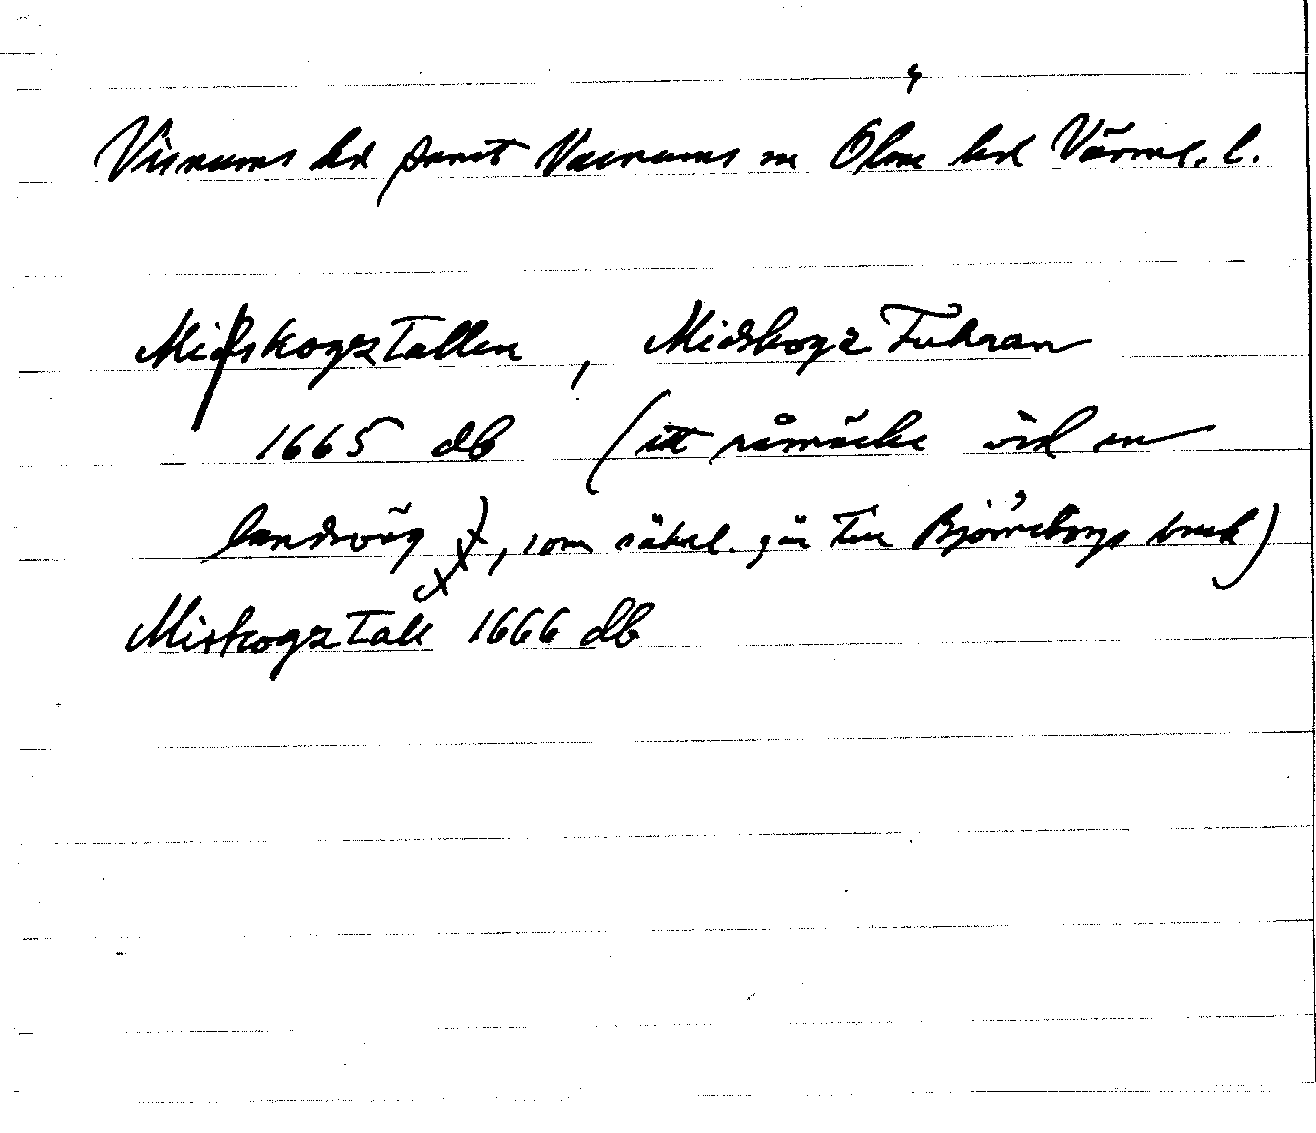 Visnums hd samt Varnums sn Ölme hd Värml. l.
MidskogzTallen, MidskogzTuhran
1665 db (ett råmärke vid en
landsväg, som säkerl. går till Björneborgs bruk)
MiskogzTall 1666 db